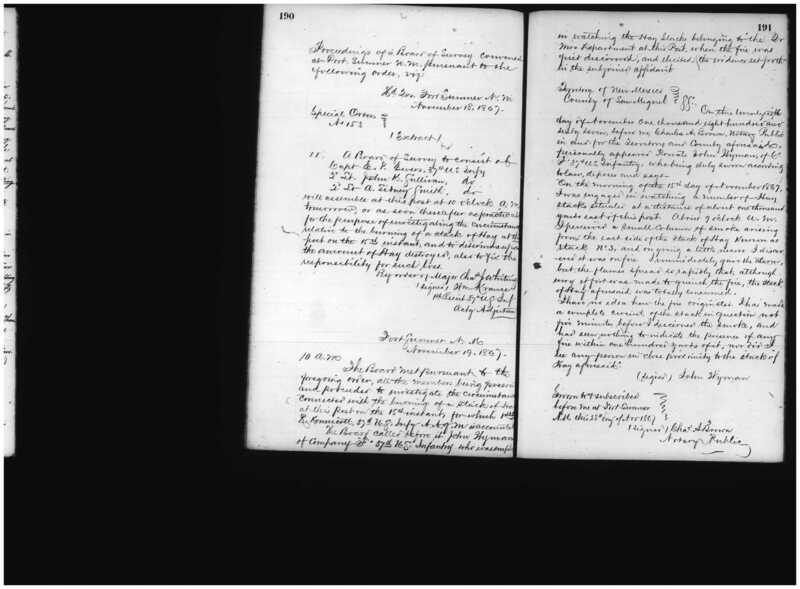 190
Proceedings of a Board of Survey convened
at Fort Sumner N.M. pursuant to the
following order, viz:
Hd. Qrs. Fort Sumner N.M.
November 18, 1867.
Special Orders
No 153
(Extract)
II. A Board of Survey to consist of
Capt 37th U.S. Infty
2d Lt. John K. Sullivan, do
2d Lt A. Sidney Smith, do
will assemble at this post at 10 o'clock A.M.
tomorrow, or as soon thereafter as practicable
for the purpose of investigating the circumstances
relative to the burning of a stack of Hay at this
post on the 15th instant, and to determine
the amount of Hay destroyed, also to fix the
responsibility for such loss.
By order of Major Chas. J. Whiting
(signed) Wm Krause
1st Lieut 37th U.S. Inf
Actg Adjutant
Fort Sumner N.M.
November 19, 1867.
10 A.M.
The Board met pursuant to the
foregoing order, all the members being present
and proceeded to investigate the circumstances
connected with the burning of a stack of Hay
at this post on the 15th instant, for which
37th U.S. Infy A.A.Q.M. is accountable
The Board called before it John Wyman
of Company "F" 37th U.S. Infantry who was employed
191
in watching the Hay Stacks belonging to the Qr
Mrs Department at this Post, when the fire was
first discovered, and elicited the evidence set forth
in the subjoined affidavit
Territory of New Mexico
County of San Miguel } SS.
On this twenty fifth
day of November one thousand eight hundred and
sixty seven, before me Charles A. Brown, Notary Public
in and for the Territory and County aforesaid,
personally appeared Private John Wyman, of Co
"F" 37th U.S. Infantry, who being duly sworn according
to law, deposes and says—
On the morning of the 15th day of November 1867,
I was engaged in watching a number of Hay
stacks situated at a distance of about one thousand
yards east of this post. About 9 o'clock A.M.
I perceived a small column of smoke arising
from the east side of the stack of Hay known as
stack No 3, and on going a little nearer I discov-
ered it was on fire. I immediately gave the alarm,
but the flames spread so rapidly that, although
every effort was made to quench the fire, the stack
of Hay aforesaid was totally consumed.
I have no idea how the fire originated. I had made
a complete circuit of the stack in question not
five minutes before I discovered the smoke, and
had seen nothing to indicate the presence of any
fire within one hundred yards of it, nor did I
see any person in close proximity to the stack of
Hay aforesaid.
(signed) John Wyman
Sworn to & subscribed
before me at Fort Sumner
N.M. this 25th day of Nov 1867
(signed) Chas. A Brown
Notary Public